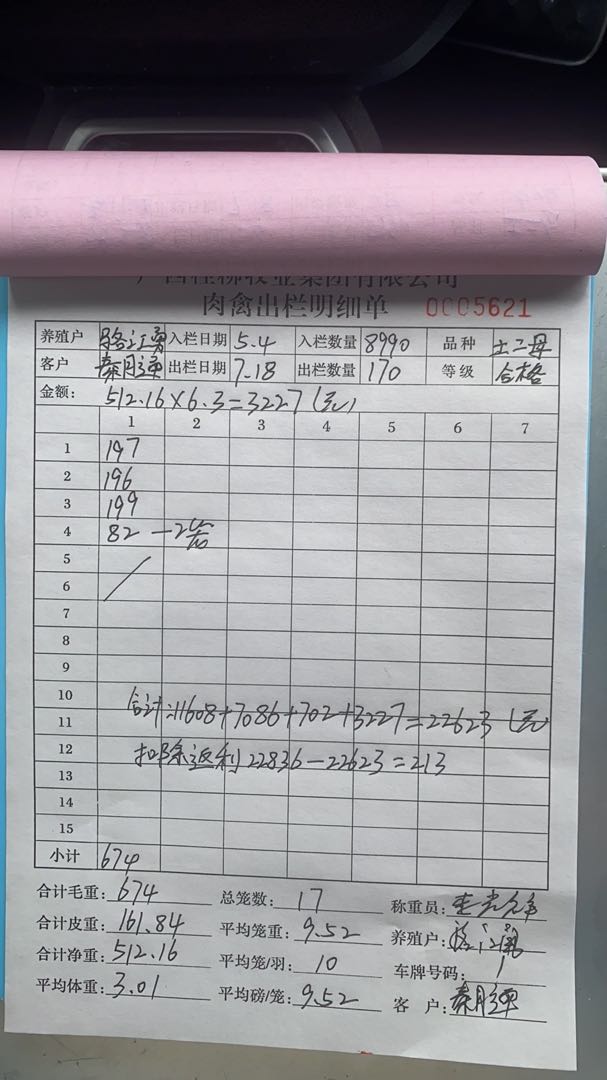 肉禽出栏明细单 0005621
养殖户 入栏日期 5.4 入栏数量 8990 品种 土二母
客户 秦月强 出栏日期 7.18 出栏数量 170 等级 合格
金额: 512.16×6.3=3227(元)
1 2 3 4 5 6 7
1 197
2 196
3 199
4 82 —2
5
6
7
8
9
10
合计:11608+7086+702+3227=22623(元)
11
12
扣除返利22836-22623=213
13
14
15
小计 674
合计毛重: 674 总笼数: 17 称重员:
合计皮重: 161.84 平均笼重: 9.52 养殖户:
合计净重: 512.16 平均笼/羽: 10 车牌号码: 1
平均体重: 3.01 平均磅/笼: 9.52 客 户: 秦月强